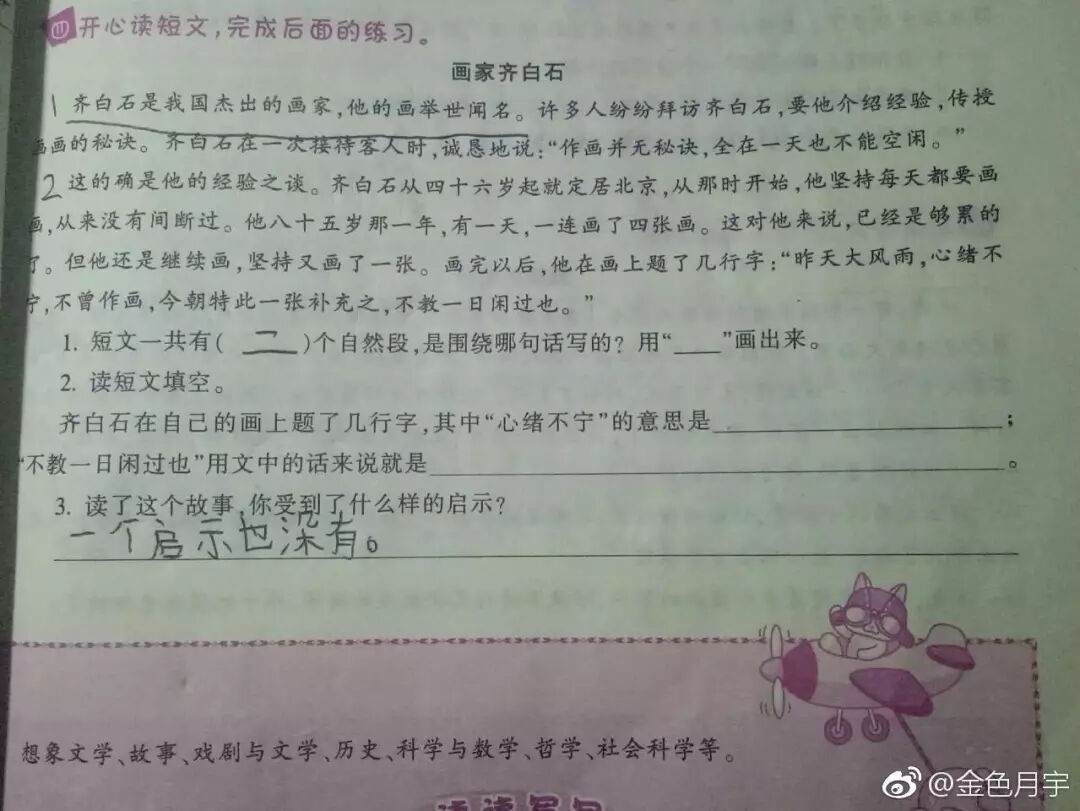 四 开心读短文，完成后面的练习。
画家齐白石
1 齐白石是我国杰出的画家，他的画举世闻名。许多人纷纷拜访齐白石，要他介绍经验，传授
画画的秘诀。齐白石在一次接待客人时，诚恳地说：“作画并无秘诀，全在一天也不能空闲。”
2 这的确是他的经验之谈。齐白石从四十六岁起就定居北京，从那时开始，他坚持每天都要画
画，从来没有间断过。他八十五岁那一年，有一天，一连画了四张画。这对他来说，已经是够累的
了。但他还是继续画，坚持又画了一张。画完以后，他在画上题了几行字：“昨天大风雨，心绪不
宁，不曾作画，今朝特此一张补充之，不教一日闲过也。”
1. 短文一共有( 二 )个自然段，是围绕哪句话写的？用“____”画出来。
2. 读短文填空。
齐白石在自己的画上题了几行字，其中“心绪不宁”的意思是____________________；
“不教一日闲过也”用文中的话来说就是________________________________________。
3. 读了这个故事，你受到了什么样的启示？
一个启示也没有。
想象文学、故事、戏剧与文学、历史、科学与数学、哲学、社会科学等。
@金色月宇